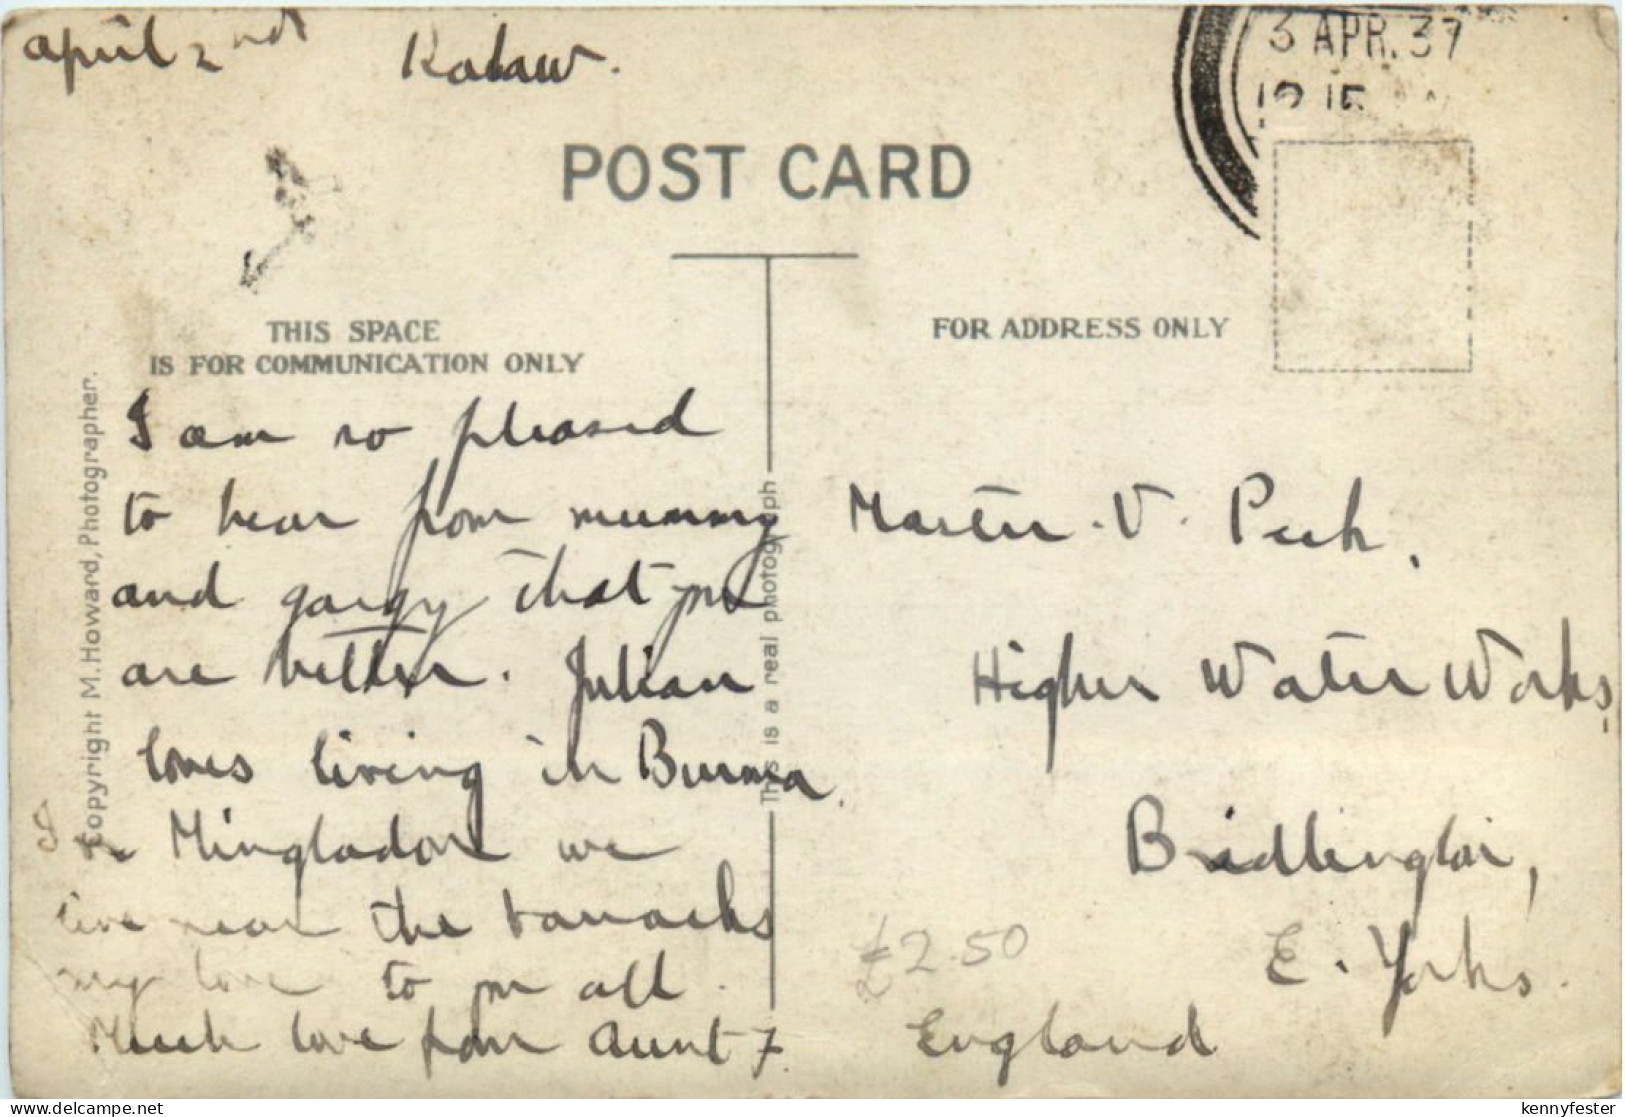 April 2nd Kalaw.
3 APR. 37
12 15
POST CARD
THIS SPACE
IS FOR COMMUNICATION ONLY
FOR ADDRESS ONLY
I am so pleased
to hear from mummy
and gargy that you
are better. Julian
loves living in Burma.
In Mingladon we
live near the barracks
my love to you all.
Much love from Aunt F.
Master V. Peek,
Higher Water Works,
Bridlington,
E. Yorks.
England
£2.50
Copyright M. Howard, Photographer.
This is a real photograph
kennyfester